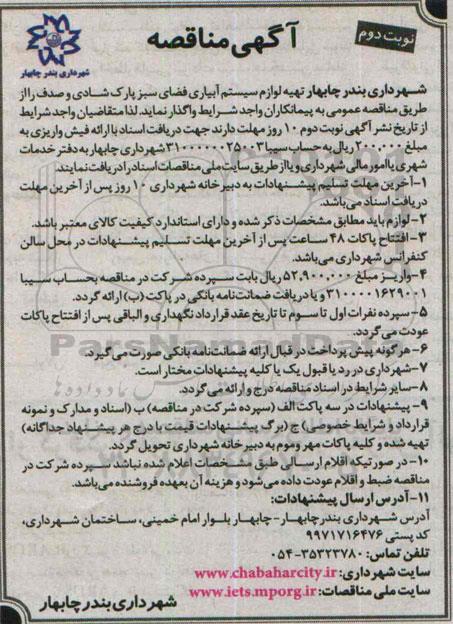 آگهی مناقصه
نوبت دوم
شهرداری بندر چابهار
شهرداری بندر چابهار تهیه لوازم سیستم آبیاری فضای سبز پارک شادی و صدف را از
طریق مناقصه عمومی به پیمانکاران واجد شرایط واگذار نماید. لذا متقاضیان واجد شرایط
از تاریخ نشر آگهی نوبت دوم ۱۰ روز مهلت دارند جهت دریافت اسناد با ارائه فیش واریزی به
مبلغ ۲۰۰،۰۰۰ ریال به حساب سیبا ۳۱۰۰۰۰۰۰۲۵۰۰۳ شهرداری چابهار به دفتر خدمات
شهری یا امور مالی شهرداری و یا از طریق سایت ملی مناقصات اسناد را دریافت نمایند.
۱-آخرین مهلت تسلیم پیشنهادات به دبیرخانه شهرداری ۱۰ روز پس از آخرین مهلت
دریافت اسناد می‌باشد.
۲-لوازم باید مطابق مشخصات ذکر شده و دارای استاندارد کیفیت کالای معتبر باشد.
۳-افتتاح پاکات ۴۸ ساعت پس از آخرین مهلت تسلیم پیشنهادات در محل سالن
کنفرانس شهرداری می‌باشد.
۴-واریز مبلغ ۵۲,۹۰۰,۰۰۰ ریال بابت سپرده شرکت در مناقصه بحساب سیبا
۳۱۰۰۰۰۱۶۲۹۰۰۱ و یا دریافت ضمانت‌نامه بانکی در پاکت (ب) ارائه گردد.
۵-سپرده نفرات اول تا سوم تا تاریخ عقد قرارداد نگهداری و الباقی پس از افتتاح پاکات
عودت می‌گردد.
۶-هرگونه پیش پرداخت در قبال ارائه ضمانت‌نامه بانکی صورت می‌گیرد.
۷-شهرداری در رد یا قبول یک یا کلیه پیشنهادات مختار است.
۸-سایر شرایط در اسناد مناقصه درج و ارائه می‌گردد.
۹- پیشنهادات در سه پاکت الف (سپرده شرکت در مناقصه) ب (اسناد و مدارک و نمونه
قرارداد و شرایط خصوصی) ج (برگ پیشنهادات قیمت با درج هر پیشنهاد جداگانه)
تهیه شده و کلیه پاکات مهر و موم به دبیر خانه شهرداری تحویل گردد.
۱۰- در صورتیکه اقلام ارسالی طبق مشخصات اعلام شده نباشد سپرده شرکت در
مناقصه ضبط و اقلام عودت داده می‌شود و هزینه آن بعهده فروشنده می‌باشد.
۱۱-آدرس ارسال پیشنهادات:
آدرس شهرداری بندر چابهار- چابهار بلوار امام خمینی، ساختمان شهرداری،
کد پستی ۹۹۷۱۷۱۶۴۷۶
تلفن تماس: ۳۵۳۲۳۷۸۰-۰۵۴
سایت شهرداری: www.chabaharcity.ir
سایت ملی مناقصات: www.iets.mporg.ir
شهرداری بندر چابهار
ParsNamadData